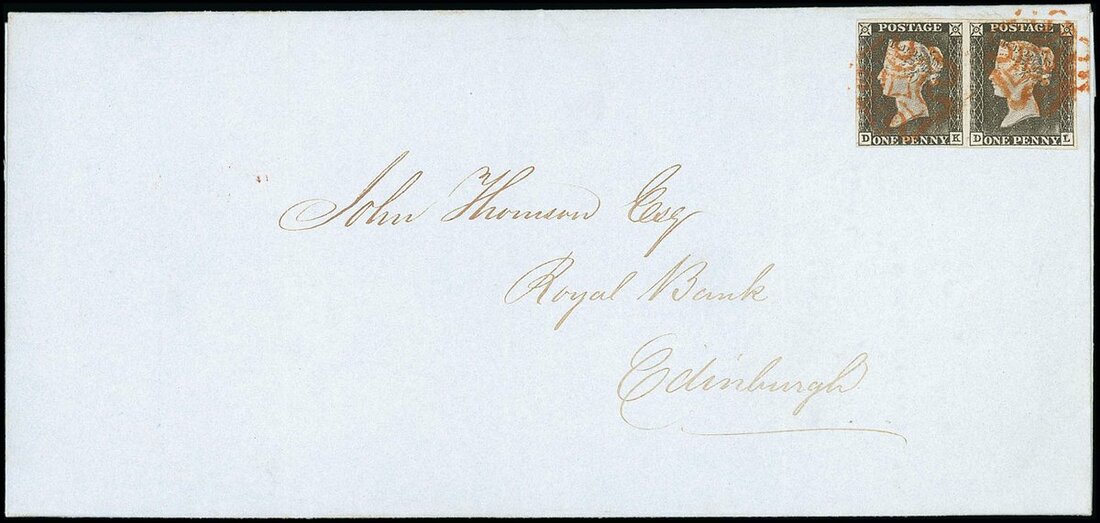 POSTAGE POSTAGE
D ONE PENNY K D ONE PENNY L
John Thomson Esq
Royal Bank
Edinburgh